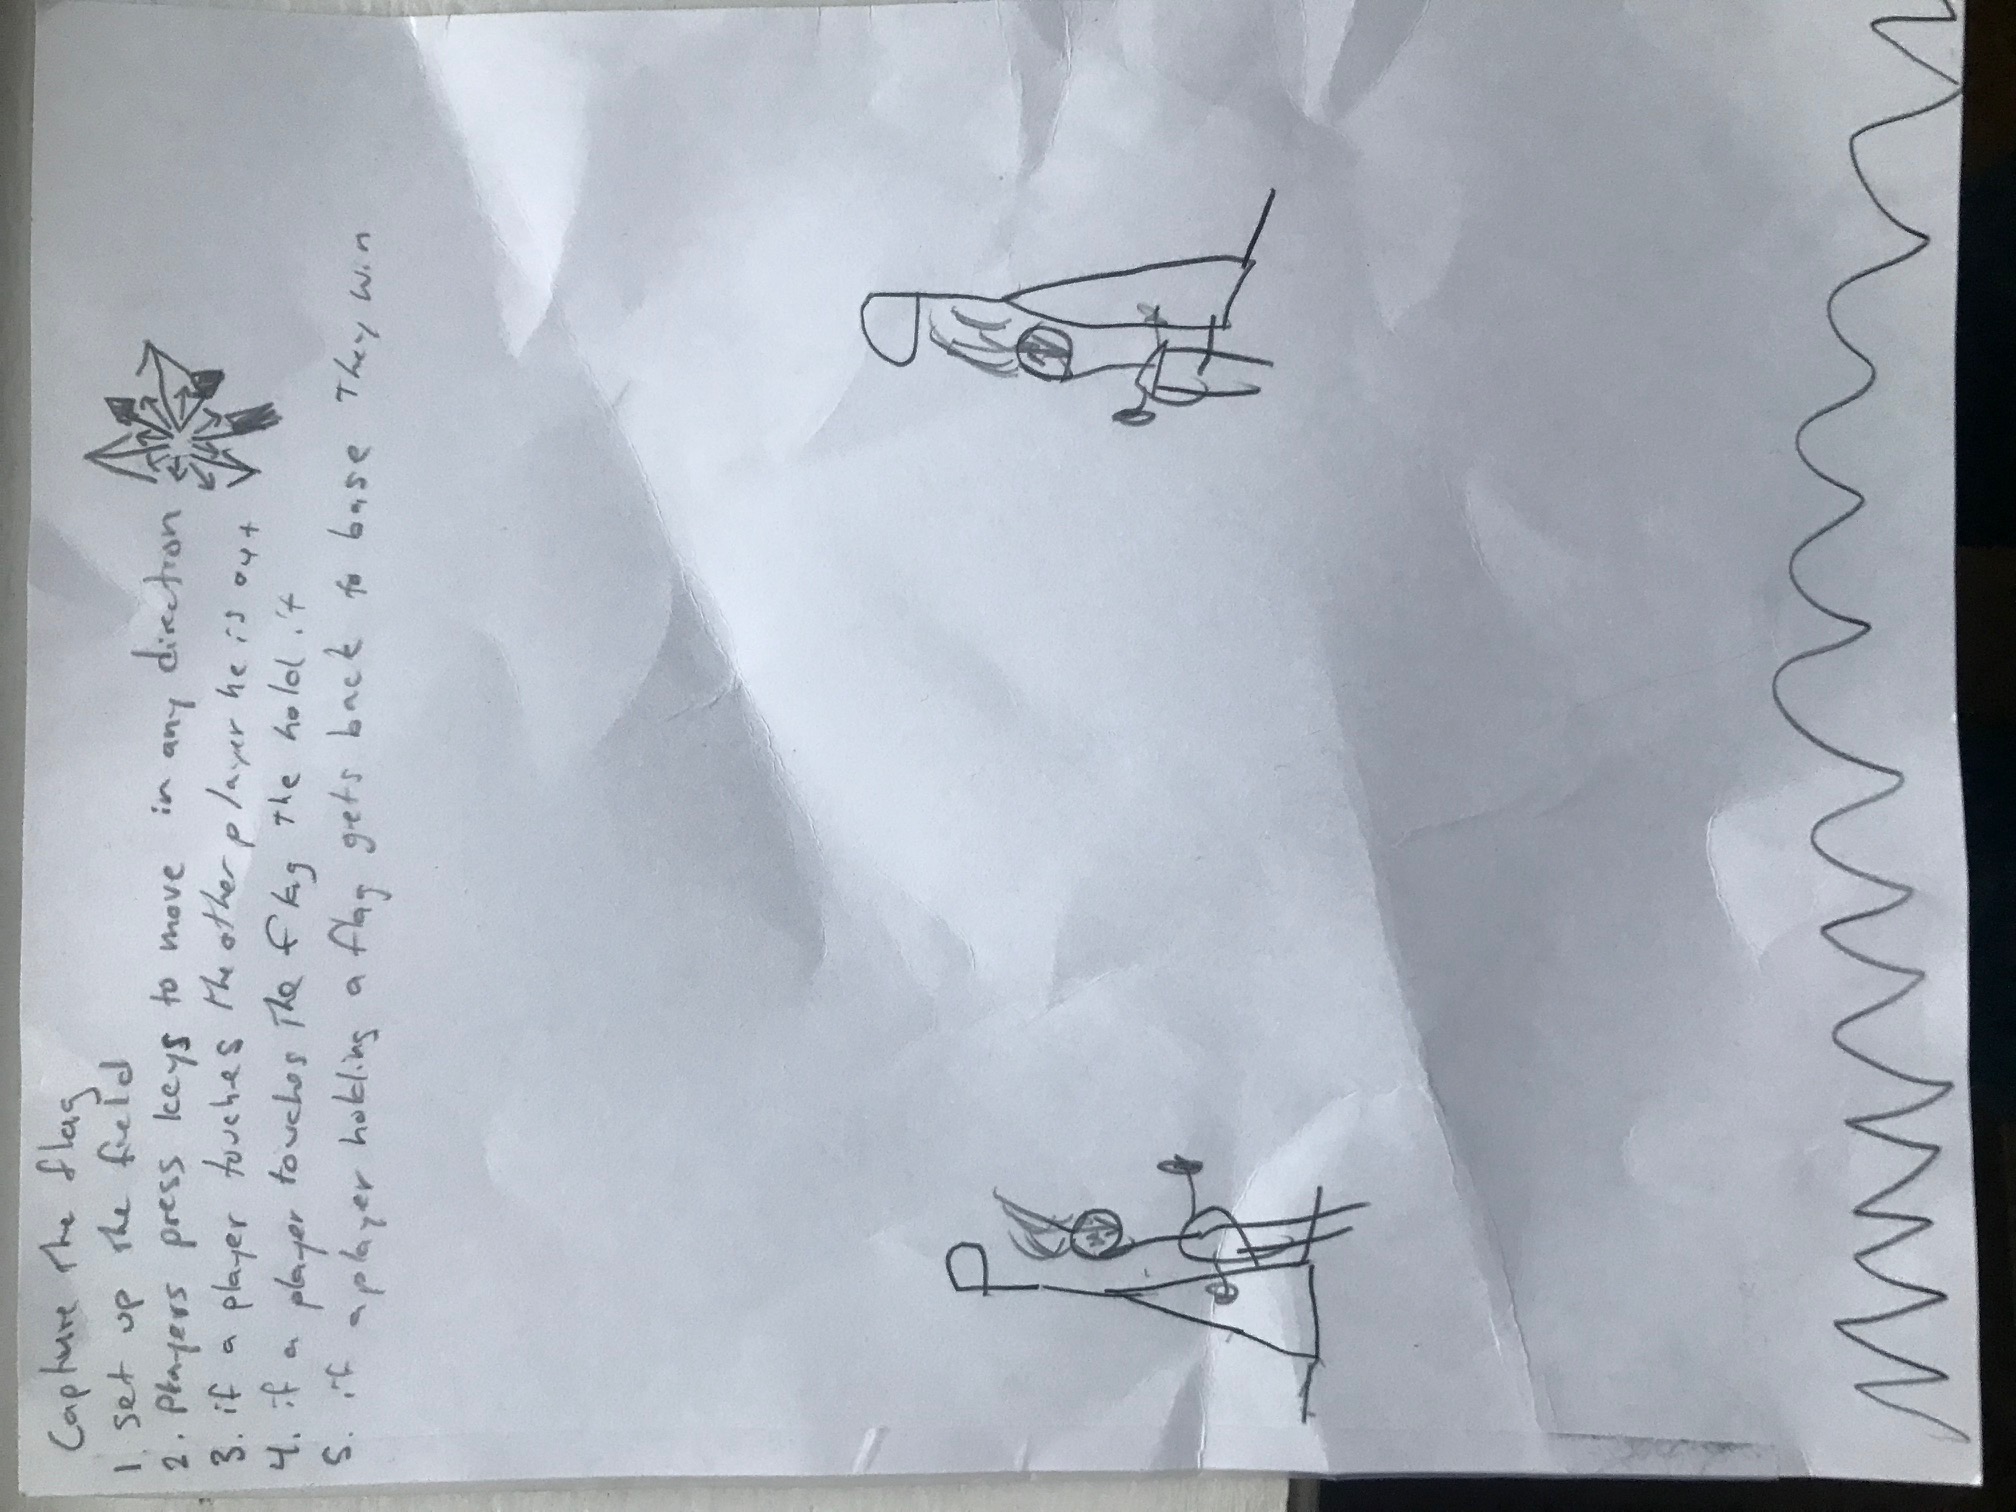 Capture the flag
1. set up the field
2. Players press keys to move in any direction
3. if a player touches the other player he is out
4. if a player touches the flag the hold it
5. if a player holding a flag gets back to base They win